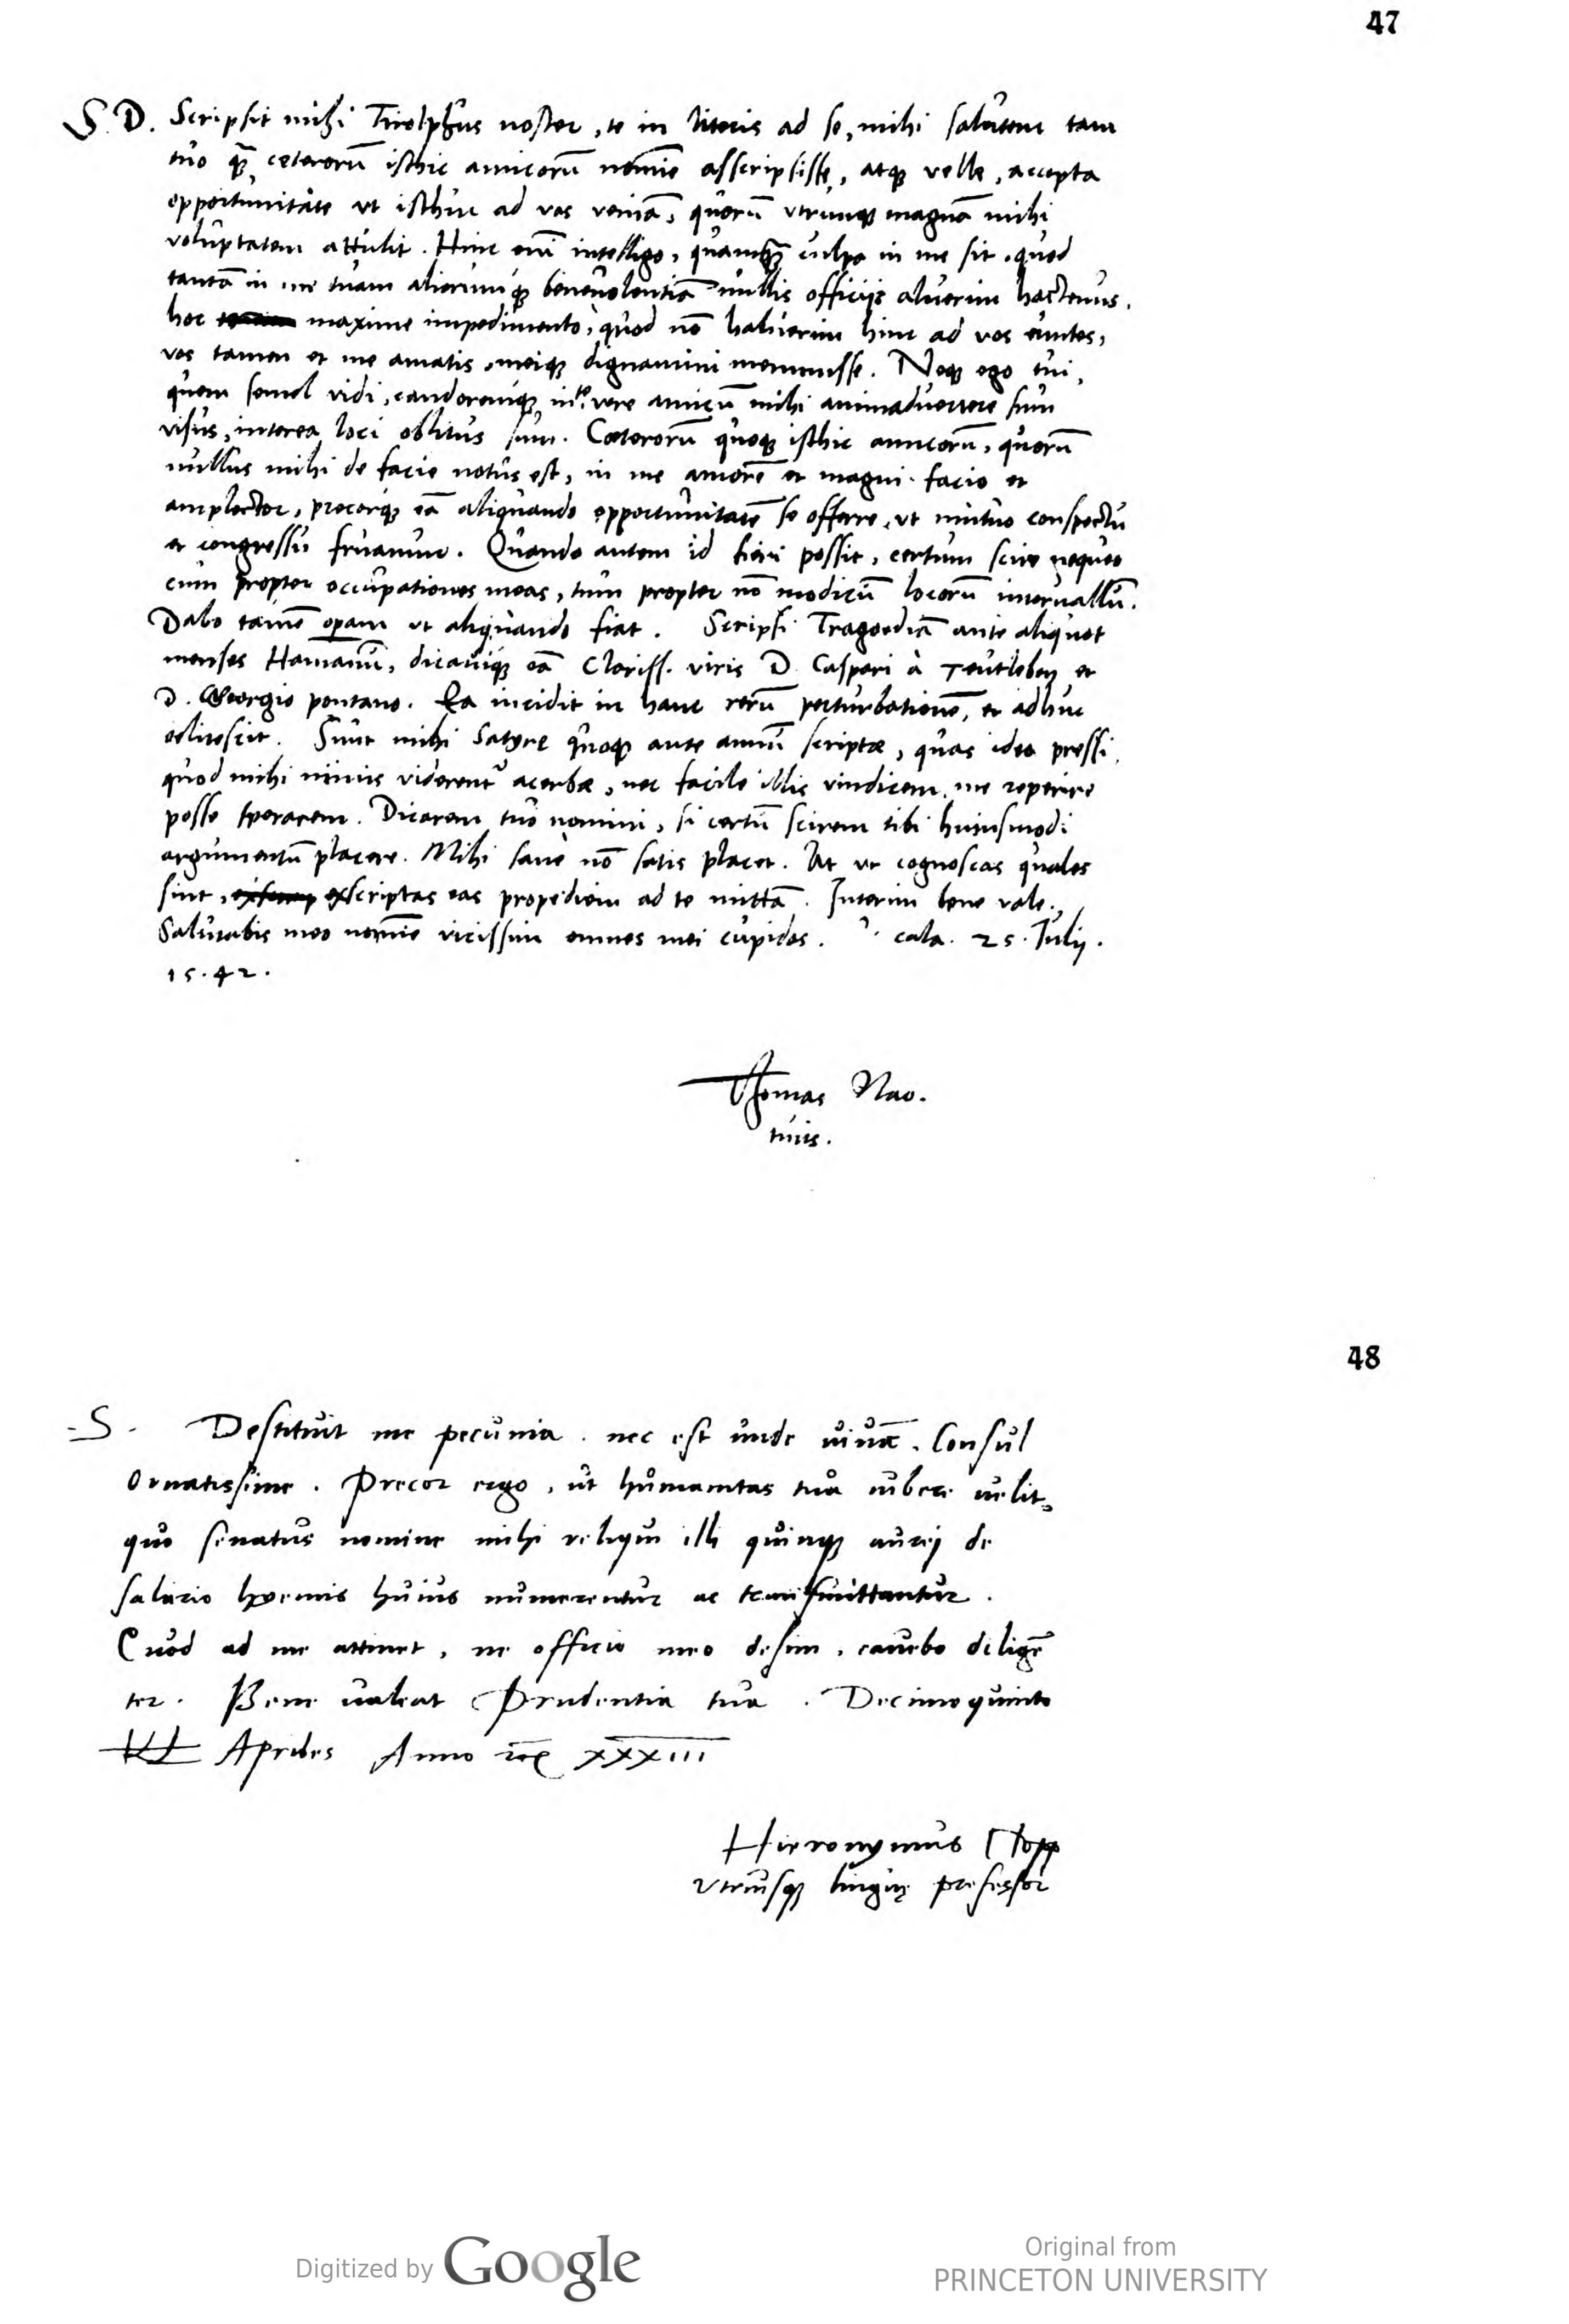 47
S. D. Scripsit mihi Tirolphus noster, te in literis ad se, mihi salutem tam
tuo quā ceterorū isthic amicorū nomīe asscripsisse, atq; velle, accepta
opportunitate ut isthuc ad vos veniā, quorū utrunq; magnā mihi
voluptatem attulit. Hinc enī intelligo, quamq̄ culpa in me sit, quod
tantā in me tuam aliorumq; benevolentiā nullis officijs aluerim hactenus,
hoc maxime impedimento, quod nō habuerim hinc ad vos euntes,
vos tamen et me amatis, meiq; dignamini meminisse. Neq; ego tui,
quem semel vidi, candoremq; in te vere amicū mihi animadvertere sum
visus, interea loci oblitus sum. Caeterorū quoq; isthic amicorū, quorū
nullus mihi de facie notus est, in me amorē et magni facio et
amplector, precorq; eā aliquando opportunitatē se offerre, ut mutuo conspectu
et congressu fruamur. Quando autem id fieri possit, certum scire nequeo
cum propter occupationes meas, tum propter nō modicū locorū intervallū.
Dabo tamē operam ut aliquando fiat. Scripsi Tragoediā ante aliquot
menses Hamanū, dicaviq; eā Clariss. viris D. Caspari à Teutleben et
D. Georgio pontano. Ea incidit in hanc rerū perturbationē, et adhuc
delitescit. Sunt mihi Satyre quoq; ante annū scriptae, quas ideo pressi,
quod mihi nimis viderent^r acerbae, nec facile illis vindicem me reperire
posse sperarem. Dicarem tuo nomini, si certū scirem tibi huiusmodi
argumentū placere. Mihi sane nō satis placet. At ut cognoscas quales
sint, exscriptas eas propediem ad te mittā. Interim bene vale.
Salutabis meo nomīe vicissim omnes mei cupidos. cala. 25. Julij.
15.42.
Thomas Nao.
tuus.
48
S. Destituit me pecunia. nec est unde vivā. Consul
Ornatissime. Precor ergo, ut humanitas tua iubere velit,
quo senatus nomine mihi reliqui illi quinq; aurej de
salario hyemis huius numerentur ac transmittantur.
Quod ad me attinet, ne officio meo desim, cavebo diligē
ter. Bene valeat Prudentia tua. Decimoquinto
Kl Apriles Anno XXXIII
Hieronymus Nopp
Utriusq; linguę professor
Digitized by Google
Original from
PRINCETON UNIVERSITY